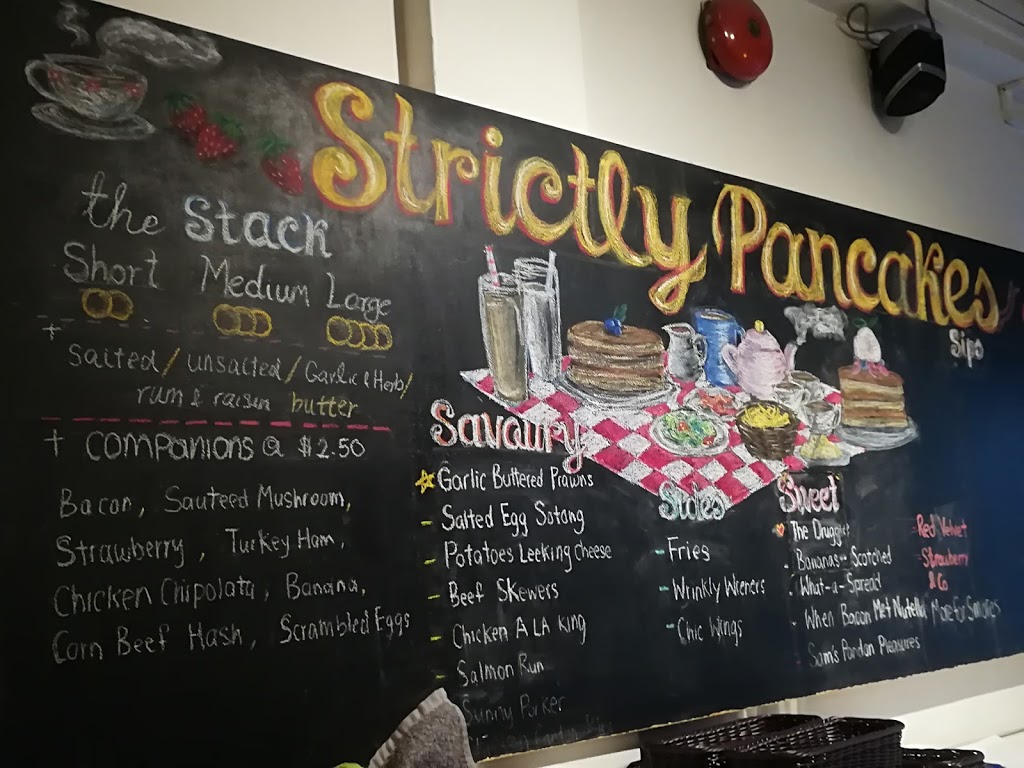 Strictly Pancakes
the Stack
Short Medium Large
+
Salted / unsalted / Garlic & Herb /
rum & raisin butter
+ COMPANIONS @ $2.50
Bacon, Sauteed Mushroom,
Strawberry, Turkey Ham,
Chicken Chipolata, Banana,
Corn Beef Hash, Scrambled Eggs
Savoury
Garlic Buttered Prawns
- Salted Egg Sotong
- Potatoes Leeking Cheese
- Beef Skewers
- Chicken A LA KING
- Salmon Run
Sunny Porker
Sides
- Fries
- Wrinkly Wieners
- Chic Wings
Sweet
The Druggie
- Bananas Scotched
- What-a-Spread
- When Bacon Met Nutella
- Sam's Pandan Pleasures
- Red Velvet
- Strawberry
& Co
Made for S'mores
Sips